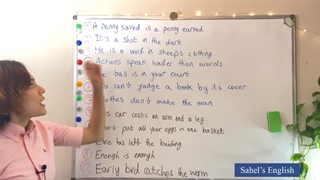 A penny saved is a penny earned
It's a shot in the dark
He is a wolf in sheep's clothing.
Actions speak louder than words.
ball is in your court
can't judge a book by its cover
clothes don't make the man.
car costs an arm and a leg.
put all your eggs in one basket.
Elvis has left the building
Enough is enough
Early bird catches the worm
Sahel's English